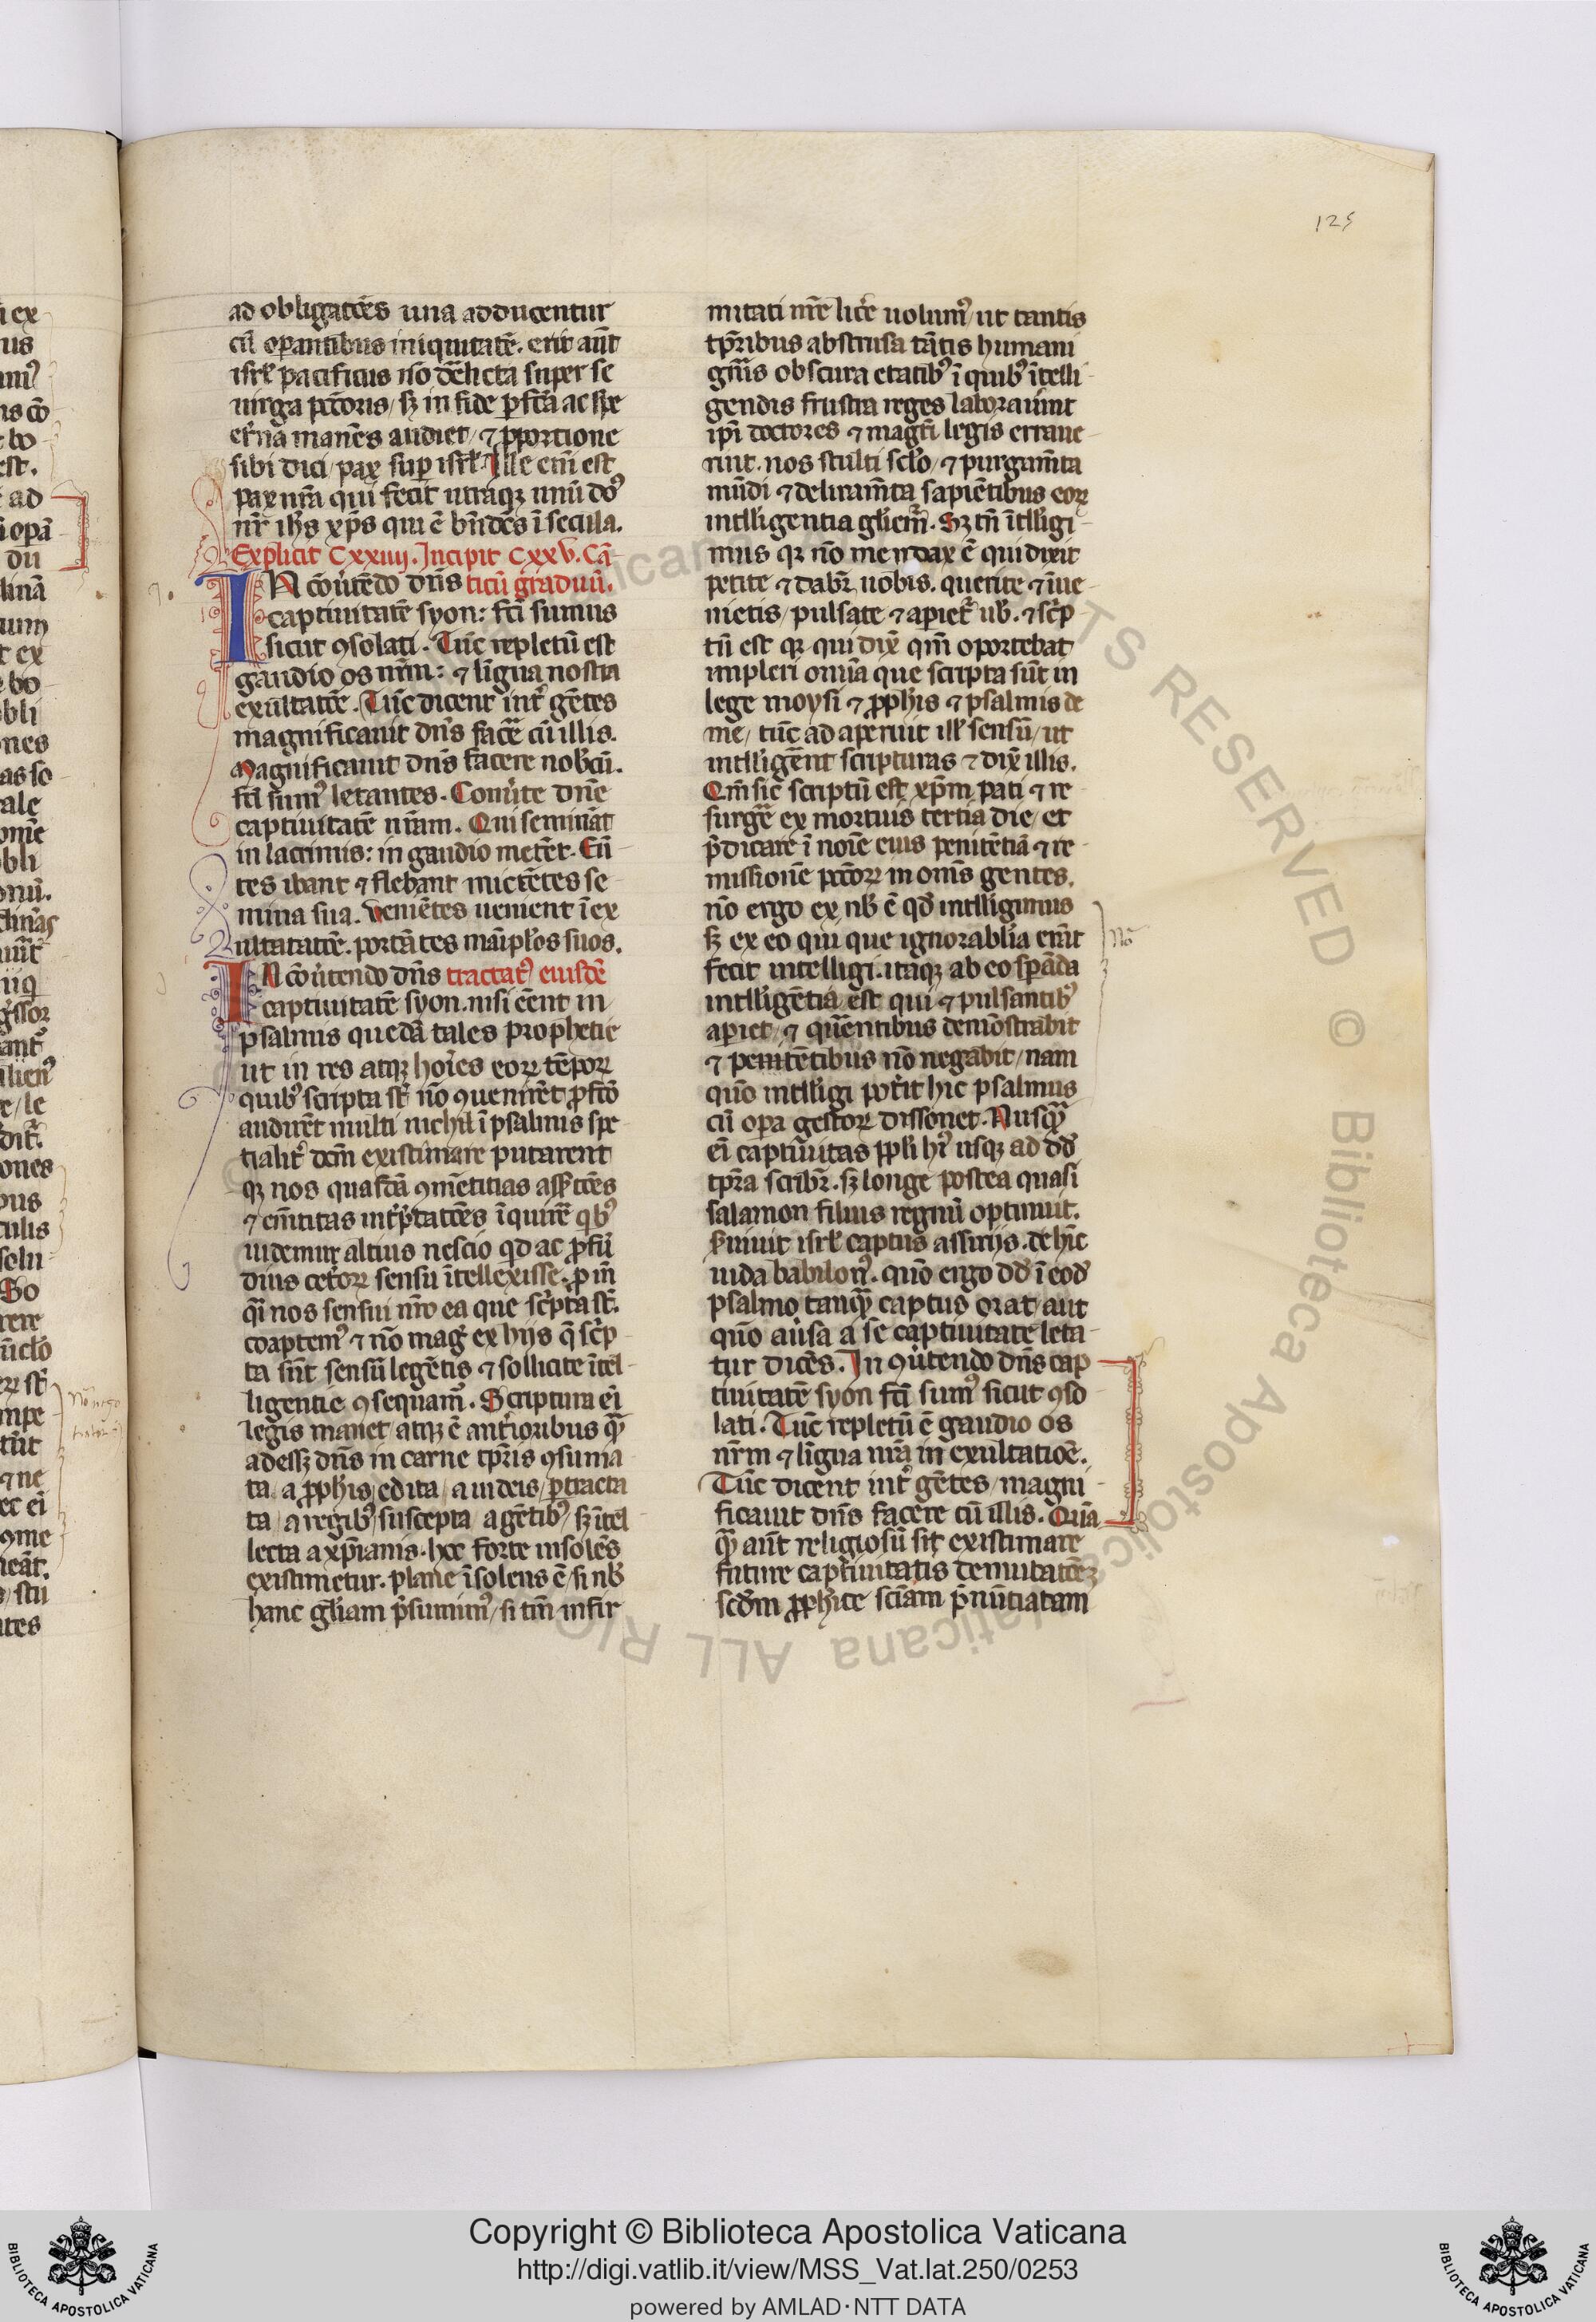 125
ad obligatões una adducentur
cũ opantibus iniquitatẽ. erit aũt
isrł pacificus nõ derelicta super se
uirga pctõris / sꝫ in fide pfcã ac spe
et̉na manẽs audiet / ⁊ pportione
sibi dici / pax sup isrł. Ille eni est
pax nr̃a qui fecit utraqꝫ unũ dos̉
nr̃ ihs̃ xp̃s qui ẽ bñdẽs ĩ secula.
Explicit Cxxiiij. Incipit Cxxv. Cã
IN cõũtẽdo dñs ticũ graduũ.
captiuitatẽ syon: fcĩ sumus
sicut ꝯsolati. Tũc repletũ est
gaudio os nr̃m: ⁊ lingua nostra
exultatõe. Tũc dicent int̉ gẽtes
magnificauit dñs facẽ cũ illis.
Magnificauit dñs facere nobcũ.
fcĩ sum̉ letantes. Conũte dñe
captiuitatẽ nr̃am. Qui seminãt
in lacrimis: in gaudio metẽt. Eũ
tes ibant ⁊ flebant mictẽtes se
mina sua. Veniẽtes uenient ĩ ex
ultatatõe. portãtes manipłos suos.
IN cõũtendo dñs tractat̉ eiusdẽ
captiuitatẽ syon. nisi eẽnt in
psalmis quedã tales prophetie
ut in res atqꝫ hoĩes eoꝝ tẽpoꝝ
quib̉ scripta st̃ nõ quenirẽt pfcõ
audirẽt multi nichil ĩ psalmis spe
tialit̉ dcm̃ existimare putarent
qꝫ nos quasdã ꝯmẽtitias assptões
⁊ emẽtitas int̉p̃tatões ĩquirẽ qb̉
uidemur altius nescio qd ac pfũ
dius cet̉oꝝ sensu ĩtellexisse. p in̉
qĩ nos sensui nr̃o ea que sc̉pta st̃.
coaptem̉ ⁊ nõ mag̉ ex hijs q̃ sc̉p
ta sũt sensũ legẽtis ⁊ sollicite ĩtel
ligentie ꝯsequam̉. Scriptura eĩ
legis manet / atqꝫ ẽ ant̉ioribus q̃
adessꝫ dñs in carne tp̃ris ꝯsuma
ta / a pphis / edita / a iudeis / ptracta
ta / a regib̉ / suscepta / a gẽtib̉ / sꝫ ĩtel
lecta a xp̃ianis. hec forte insolẽs
existimetur. plane ĩsolens ẽ / si nb̉
hanc gl̃iam p̃sumim̉ / si tm̃ infir
mitati nr̃e lic̉e uolum̉ / ut tantis
tp̃ribus abstrusa tãtis humani
gñis obscura etatib̉ ĩ quib̉ ĩtelli
gendis frustra reges laborauint
ipĩ doctores ⁊ magr̃i legis erraue
rũt. nos stulti sclõ / ⁊ purgam̃ta
mũdi ⁊ deliram̃ta sapiẽtibus eoꝝ
intll̃igentia gl̃iem̃. Sꝫ tñ ĩtll̃igi
mus qꝛ nõ mendax ẽ qui dixit
petite ⁊ dabr̃ uobis. querite ⁊ ĩue
nietis / pulsate ⁊ apiet̉ ub̉. ⁊ sc̉p
tũ est qꝛ qui dix̃ qm̃ oportebat
impleri omĩa que scripta sũt in
lege moysi ⁊ pphis ⁊ psalmis de
me / tũc adaperuit ill̃ sensũ / ut
intll̃igẽnt scripturas ⁊ dix̃ illis.
Qm̃ sic scriptũ est xp̃m pati ⁊ re
surgẽ ex mortuis tertia die / et
p̃dicare ĩ noĩe eius penitẽtiã ⁊ re
missionẽ pctõꝝ in omĩs gentes.
nõ ergo ex nb̉ ẽ qd̃ intlligimus
sꝫ ex eo qui que ignorabl̃ia erãt
fecit intelligi. itaqꝫ ab eo sperãda
intll̃igẽtia est qui ⁊ pulsantib̉
apiet / ⁊ quẽntibus demõstrabit
⁊ penitẽtibus nõ negabit / nam
quõ intll̃igi pot̉it hic psalmus
cũ opa gestoꝝ dissonet. Nusq̃
eĩ captiuitas ppli hr̃ usqꝫ ad dd̃
tp̃ra scribr̃. sꝫ longe postea quasi
salamon filius regnũ optinuit.
s̉uiuit isrł captus assirijs. dehĩc
iuda babilon̉. quõ ergo dd̃ ĩ eod̃
psalmo tanq̃ captus orat / aut
quõ aũsa a se captiuitate leta
tur dicẽs. In ꝯũtendo dñs cap
tiuitatẽ syon fcĩ sum̉ sicut ꝯso
lati. Tũc repletũ ẽ gaudio os
nr̃m ⁊ lĩgua nr̃a in exultatiõe.
Tũc dicent int̉ gẽtes / magni
ficauit dñs facere cũ illis. Quã
q̃ aũt religiosũ sit existimare
future captiuitatis
scd̃m pphie sciam p̃nũtiatam
No
Copyright © Biblioteca Apostolica Vaticana
http://digi.vatlib.it/view/MSS_Vat.lat.250/0253
powered by AMLAD·NTT DATA
BIBLIOTECA APOSTOLICA VATICANA
BIBLIOTECA APOSTOLICA VATICANA